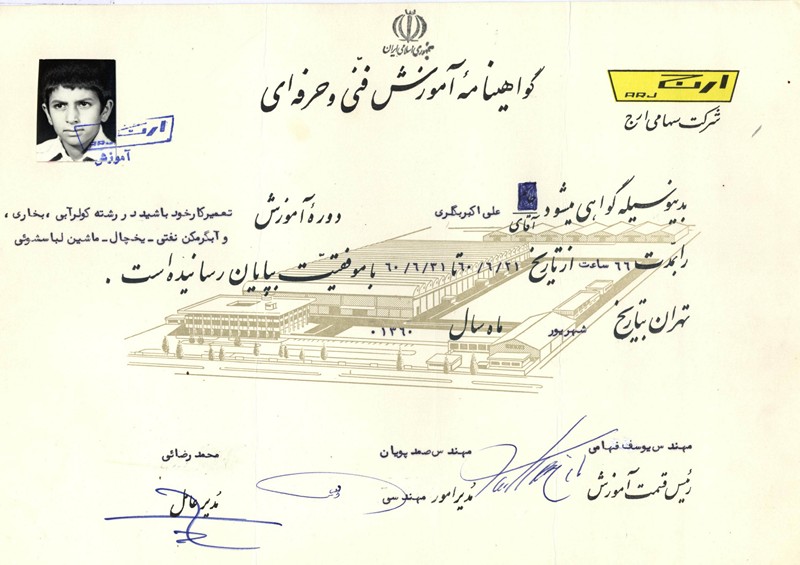 جمهوری اسلامی ایران
گواهینامهٔ آموزش فنّی و حرفه ای
ارج
ARJ
شرکت سهامی ارج
ارج
ARJ
آموزش
بدینوسیله گواهی میشود آقای علی اکبر بگلری دورهٔ آموزش تعمیرکار خود باشید در رشته کولرآبی ، بخاری ،
و آبگرمکن نفتی - یخچال - ماشین لباسشوئی
را بمدت ۶۶ ساعت از تاریخ ۶۰/۶/۲۱ تا ۶۰/۶/۳۱ با موفقیّت بپایان رسانیده است .
تهران بتاریخ شهریور ماه سال ۰۱۳۶۰
مهندس یوسف فهامی مهندس صمد پویان محمد رضائی
رئیس قسمت آموزش مُدیر امور مهندسی مُدیر عامل